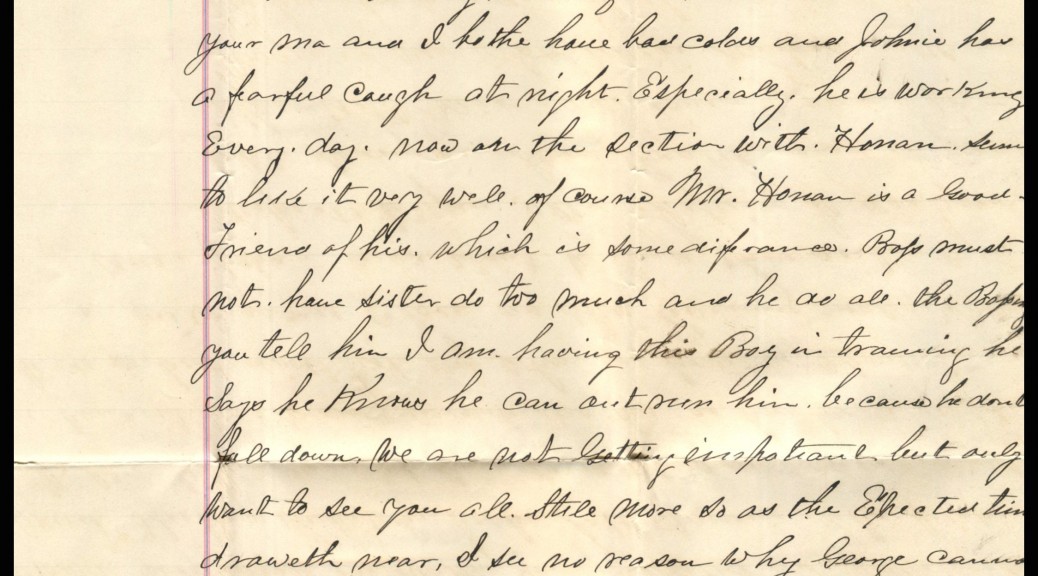 your ma and I bothe have bad colds and Johnie has
a fearful Caugh at night. Especially. he is working
Every. day. now on the section with. Honan. seem
to like it very well. of course Mr. Honan is a Good
Friend of his. which is some diferance. Boss must
not. have sister do too much and he do all. the Bossing
you tell him I am. having this Boy in training he
Says he Knows he can out run him. because he dont
fall down. We are not Getting inspatiant but only
want to see you all. Still more so as the Expected tim
draweth near, I see no reason why George canno